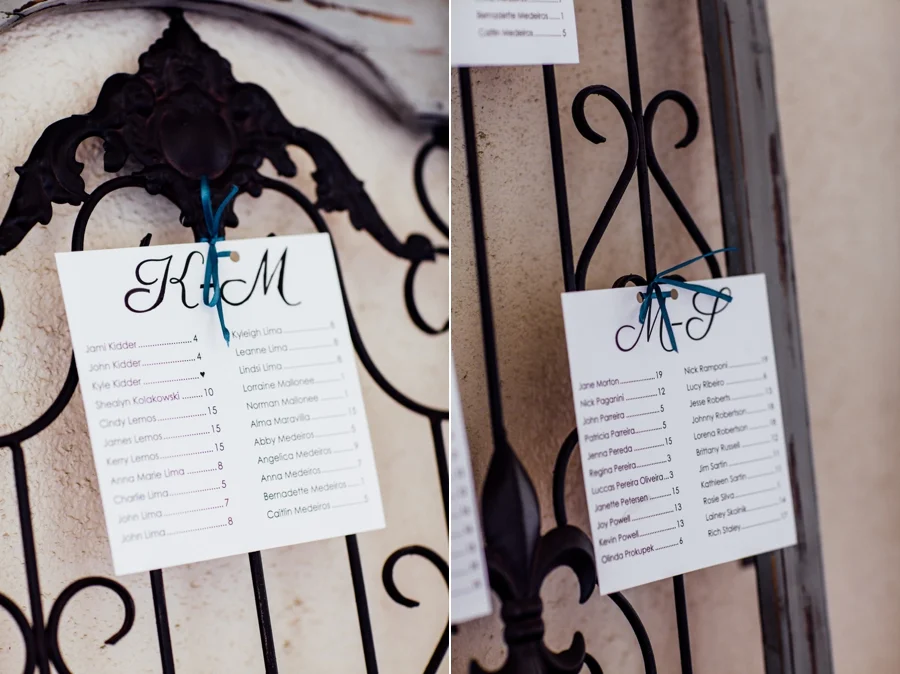 K-M
Jami Kidder 4
John Kidder 4
Kyle Kidder ♥
Shealyn Kolakowski 10
Cindy Lemos 15
James Lemos 15
Kerry Lemos 15
Anna Marie Lima 8
Charlie Lima 5
John Lima 7
John Lima 8
Kyleigh Lima 8
Leanne Lima 8
Lindsi Lima 8
Lorraine Mallonee
Norman Mallonee
Alma Maravilla 15
Abby Medeiros 5
Angelica Medeiros
Anna Medeiros
Bernadette Medeiros
Caitlin Medeiros 5
Bernadette Medeiros 1
Caitlin Medeiros 5
M-S
Jane Morton 19
Nick Paganini 12
John Parreira 5
Patricia Parreira 5
Jenna Pereda 15
Regina Pereira 3
Luccas Pereira Oliveira 3
Janette Petersen 15
Joy Powell 13
Kevin Powell 13
Olinda Prokupek 6
Nick Ramponi 19
Lucy Ribeiro
Jesse Roberts
Johnny Robertson
Lorena Robertson
Brittany Russell
Jim Sartin
Kathleen Sartin
Rosie Silva
Lainey Skolnik
Rich Staley